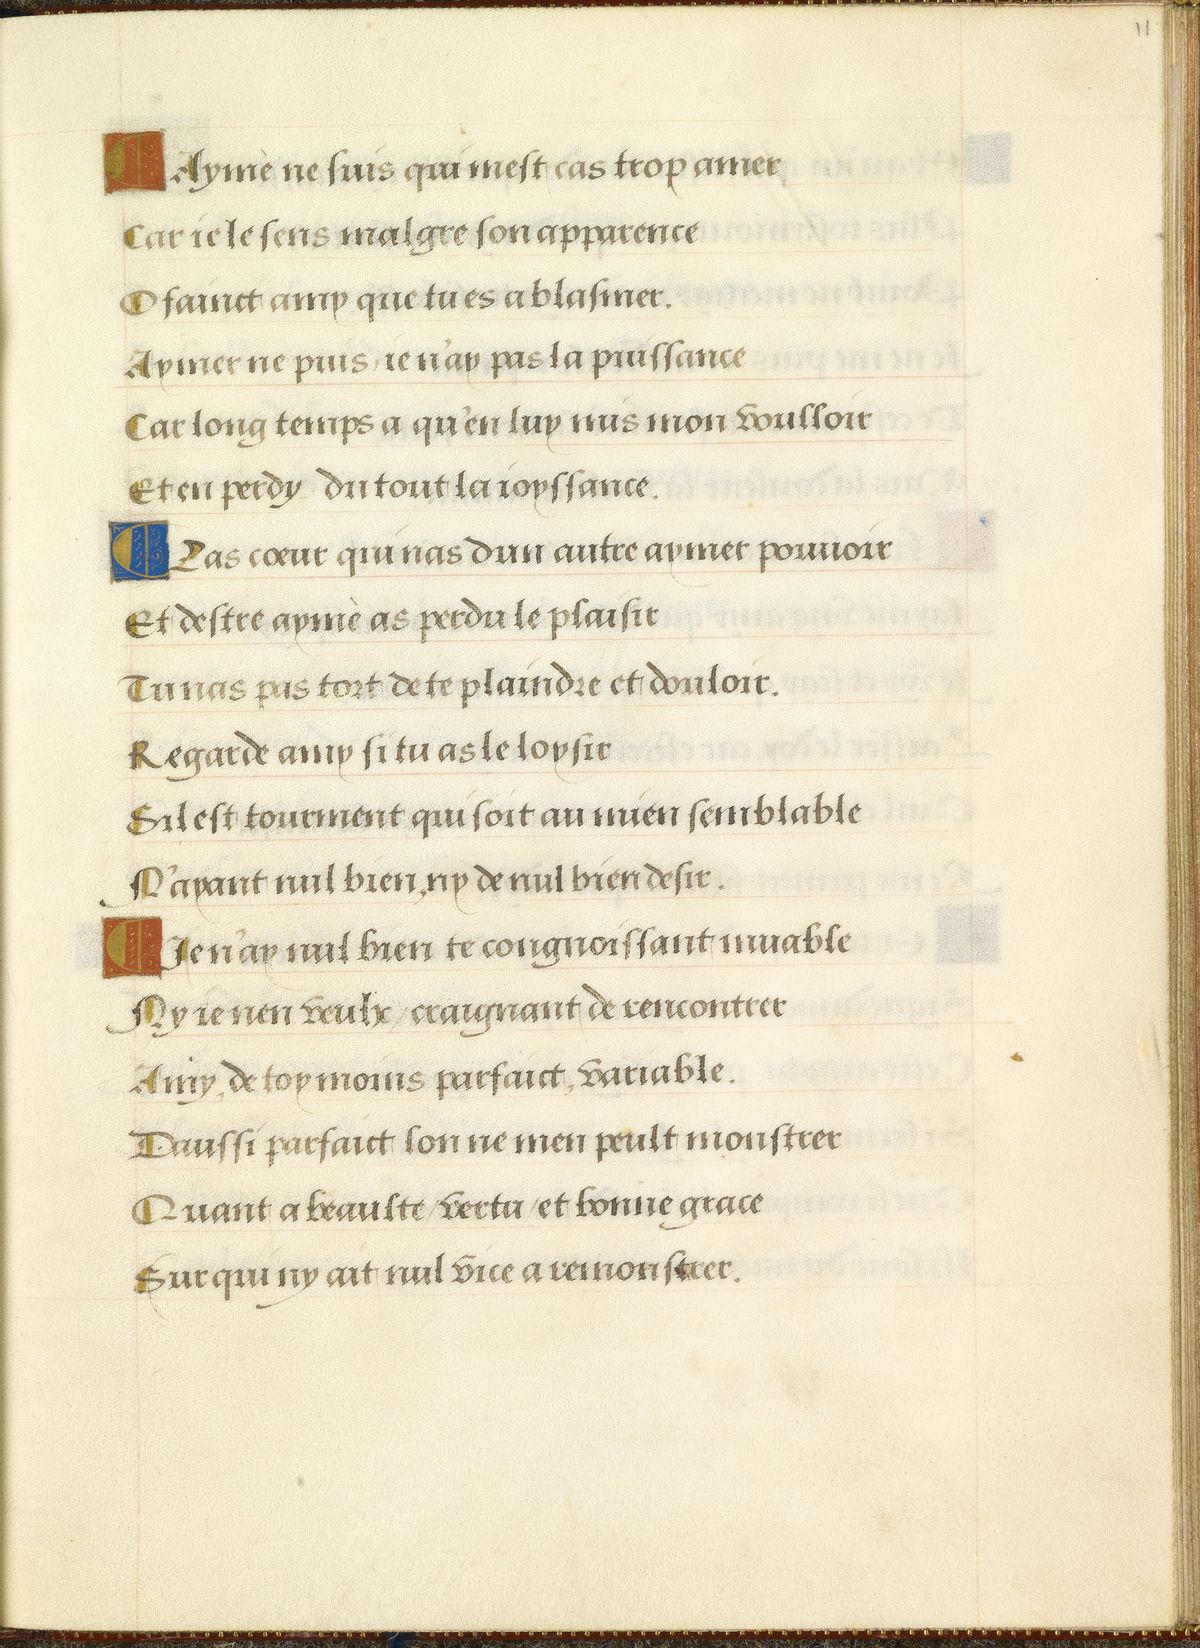 11
Aymè ne suis qui mest cas trop amer
Car ie le sens malgre son apparence
O fainct amy que tu es a blasmer.
Aymer ne puis/ie n'ay pas la puissance
Car long temps a qu'en luy mis mon voulloir
Et en perdy du tout la ioyssance.
Las cœur qui nas dun autre aymer pouuoir
Et destre aymè as perdu le plaisir
Tu nas pas tort de te plaindre et douloir.
Regarde amy si tu as le loysir
Sil est tourment qui soit au mien semblable
N'ayant nul bien,ny de nul bien desir.
Je n'ay nul bien te congnoissant muable
Ny ie nen veulx/craignant de rencontrer
Amy,de toy moins parfaict,variable.
Daussi parfaict lon ne men peult monstrer
Quant a beaulte/vertu/et bonne grace
Sur qui ny ait nul vice a remonstrer.